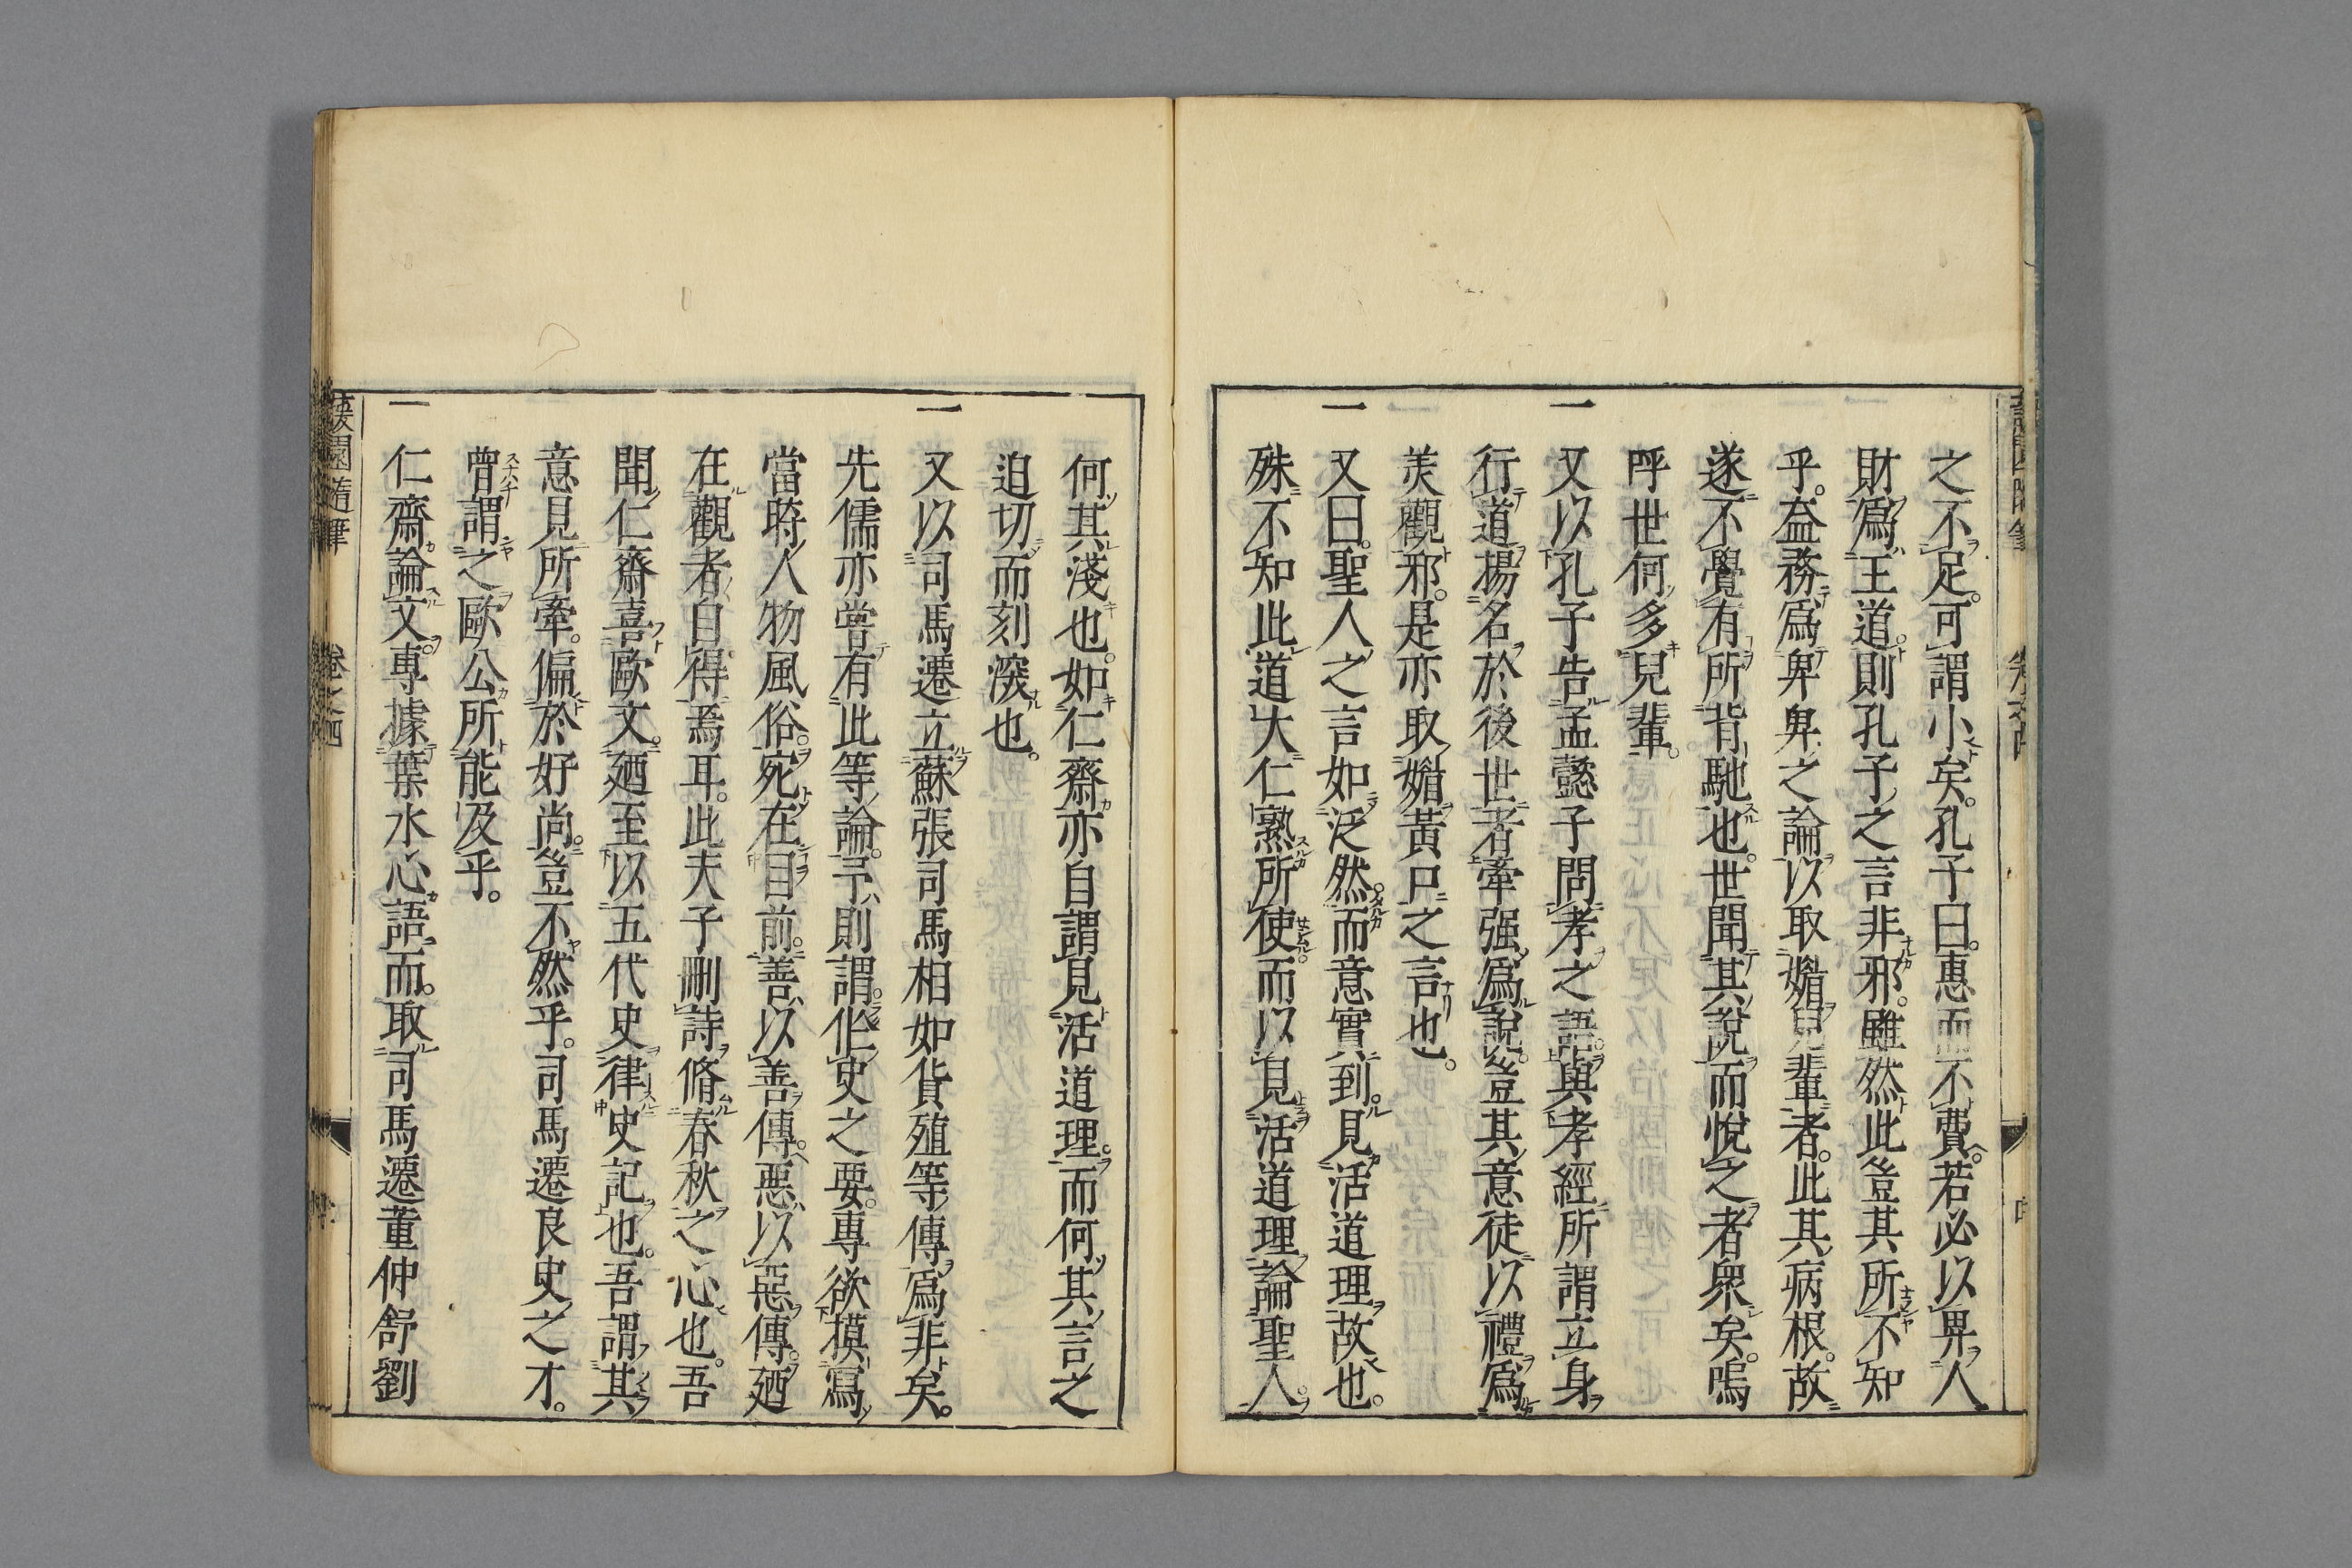 之不足。可謂小矣。孔子曰。惠而不費。若必以畀人
財爲王道。則孔子之言非邪。雖然此豈其所不知
乎。益務爲卑卑之論以取媚兒輩者。此其病根。故
遂不覺有所背馳也。世聞其說而悅之者衆矣。嗚
呼世何多兒輩。
一又以孔子告孟懿子問孝之語。與孝經所謂立身
行道揚名於後世者牽强爲說。豈其意徒以禮爲
美觀邪。是亦取媚黃口之言也。
一又曰。聖人之言如泛然。而意實到。見活道理故也。
殊不知此道大仁熟所使。而以見活道理論聖人。
何其淺也。如仁齋亦自謂見活道理。而何其言之
迫切而刻深也。
一又以司馬遷立蘇張司馬相如貨殖等傳爲非矣。
先儒亦嘗有此等論。予則謂。作史之要。專欲摸寫
當時人物風俗。宛在目前。善以善傳。惡以惡傳。廼
在觀者自得焉耳。此夫子刪詩脩春秋之心也。吾
聞仁齋喜歐文。廼至以五代史律史記也。吾謂其
意見所牽。偏於好尚。豈不然乎。司馬遷良史之才。
曾謂之歐公所能及乎。
一仁齋論文。專據葉水心語。而取司馬遷董仲舒劉
蘐園隨筆 卷之四